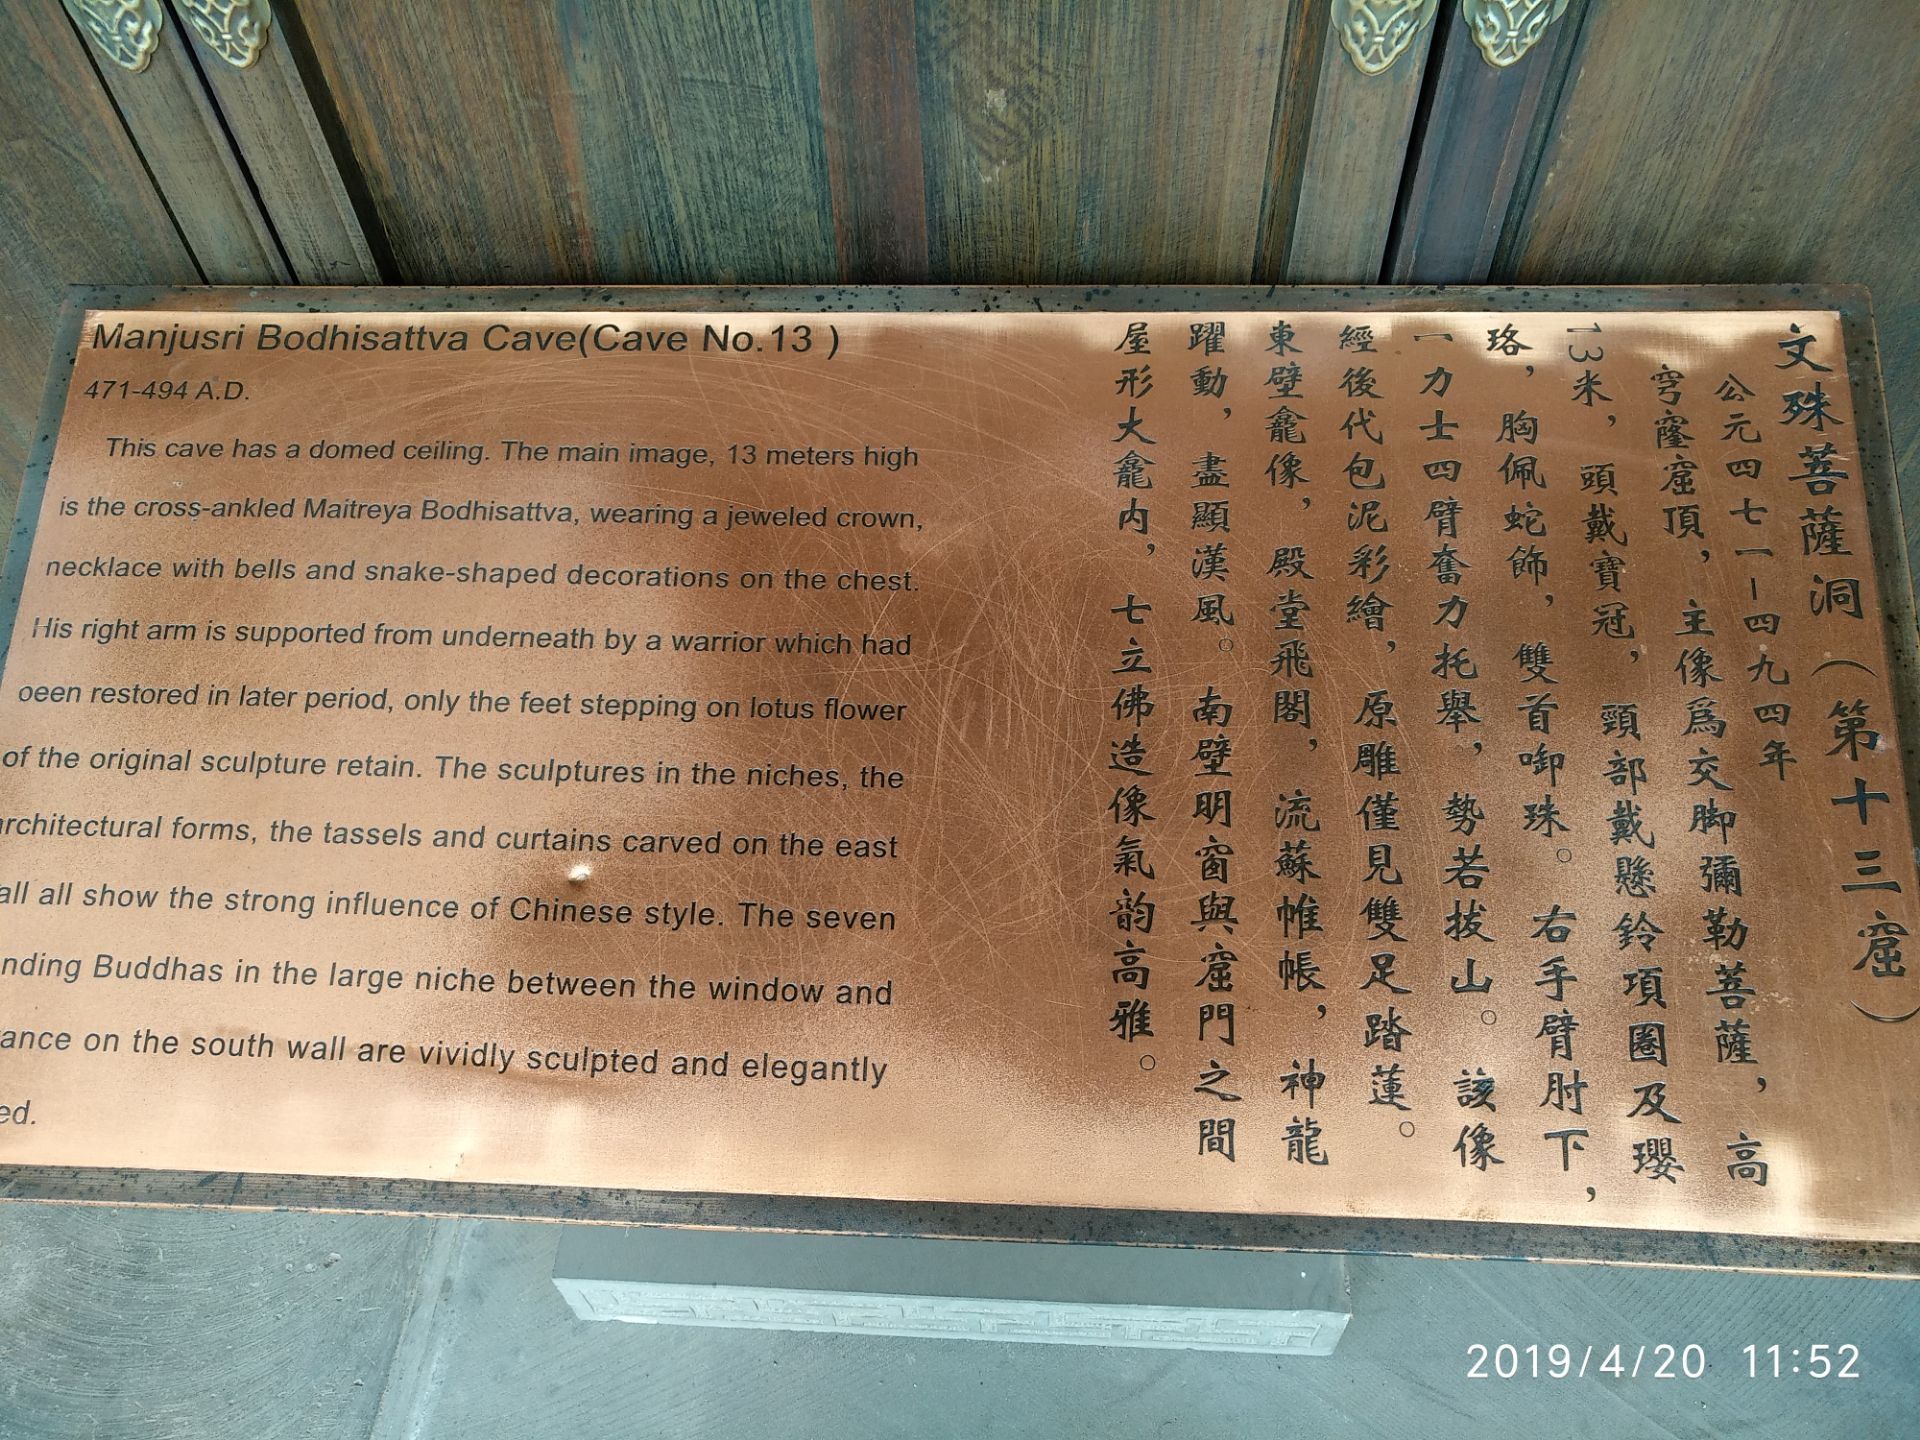 Manjusri Bodhisattva Cave(Cave No.13 )
471-494 A.D.
This cave has a domed ceiling. The main image, 13 meters high
is the cross-ankled Maitreya Bodhisattva, wearing a jeweled crown,
necklace with bells and snake-shaped decorations on the chest.
His right arm is supported from underneath by a warrior which had
been restored in later period, only the feet stepping on lotus flower
of the original sculpture retain. The sculptures in the niches, the
architectural forms, the tassels and curtains carved on the east
all all show the strong influence of Chinese style. The seven
nding Buddhas in the large niche between the window and
rance on the south wall are vividly sculpted and elegantly
ed.
文殊菩薩洞（第十三窟）
公元四七一–四九四年
穹窿窟頂，主像爲交脚彌勒菩薩，高
13米，頭戴寶冠，頸部戴懸鈴項圈及瓔
珞，胸佩蛇飾，雙首啣珠。右手臂肘下，
一力士四臂奮力托舉，勢若拔山。該像
經後代包泥彩繪，原雕僅見雙足踏蓮。
東壁龕像，殿堂飛閣，流蘇帷帳，神龍
躍動，盡顯漢風。南壁明窗與窟門之間
屋形大龕内，七立佛造像氣韵高雅。
2019/4/20 11:52